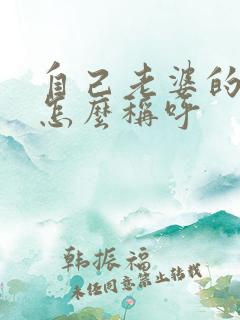 自己老婆的
怎麼稱呼
韩振福
未经同意禁止转载